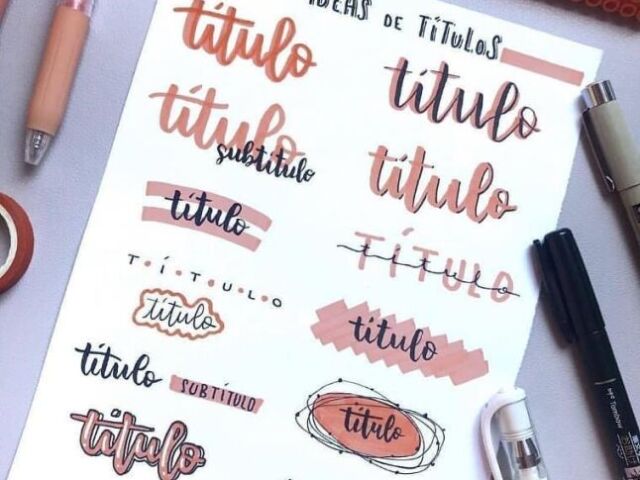 IDEAS DE TÍTULOS
título
título
título
subtítulo
título
título
TÍTULO
título
TÍTULO
título
título
título
SUBTÍTULO
título
título
Tombow